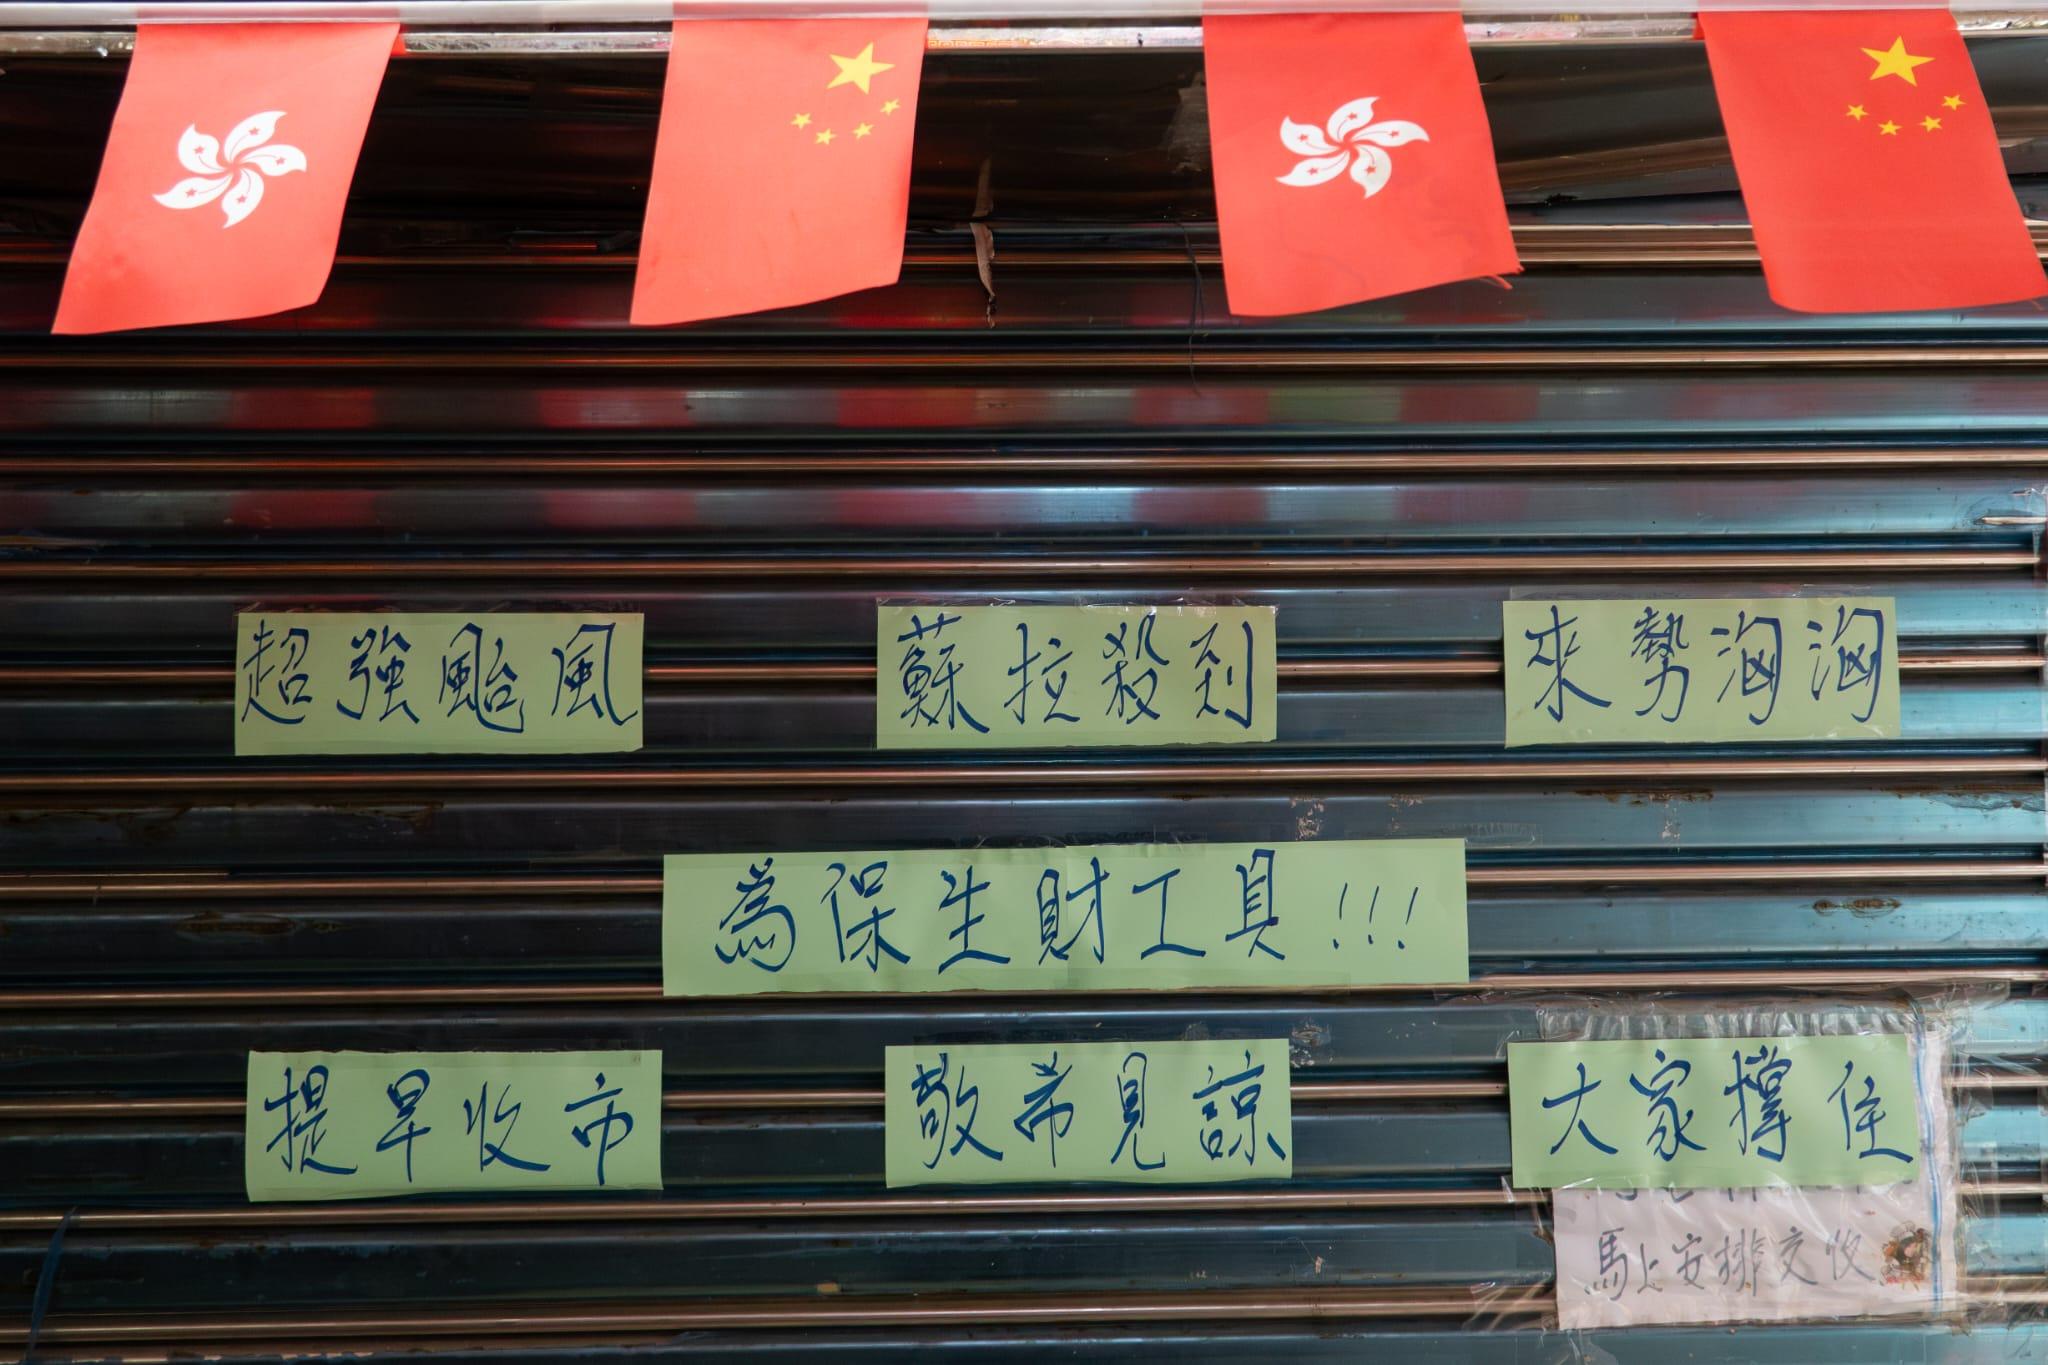 超強颱風 蘇拉殺到 來勢洶洶
為保生財工具!!!
提早收市 敬希見諒 大家撐住
馬上安排交收